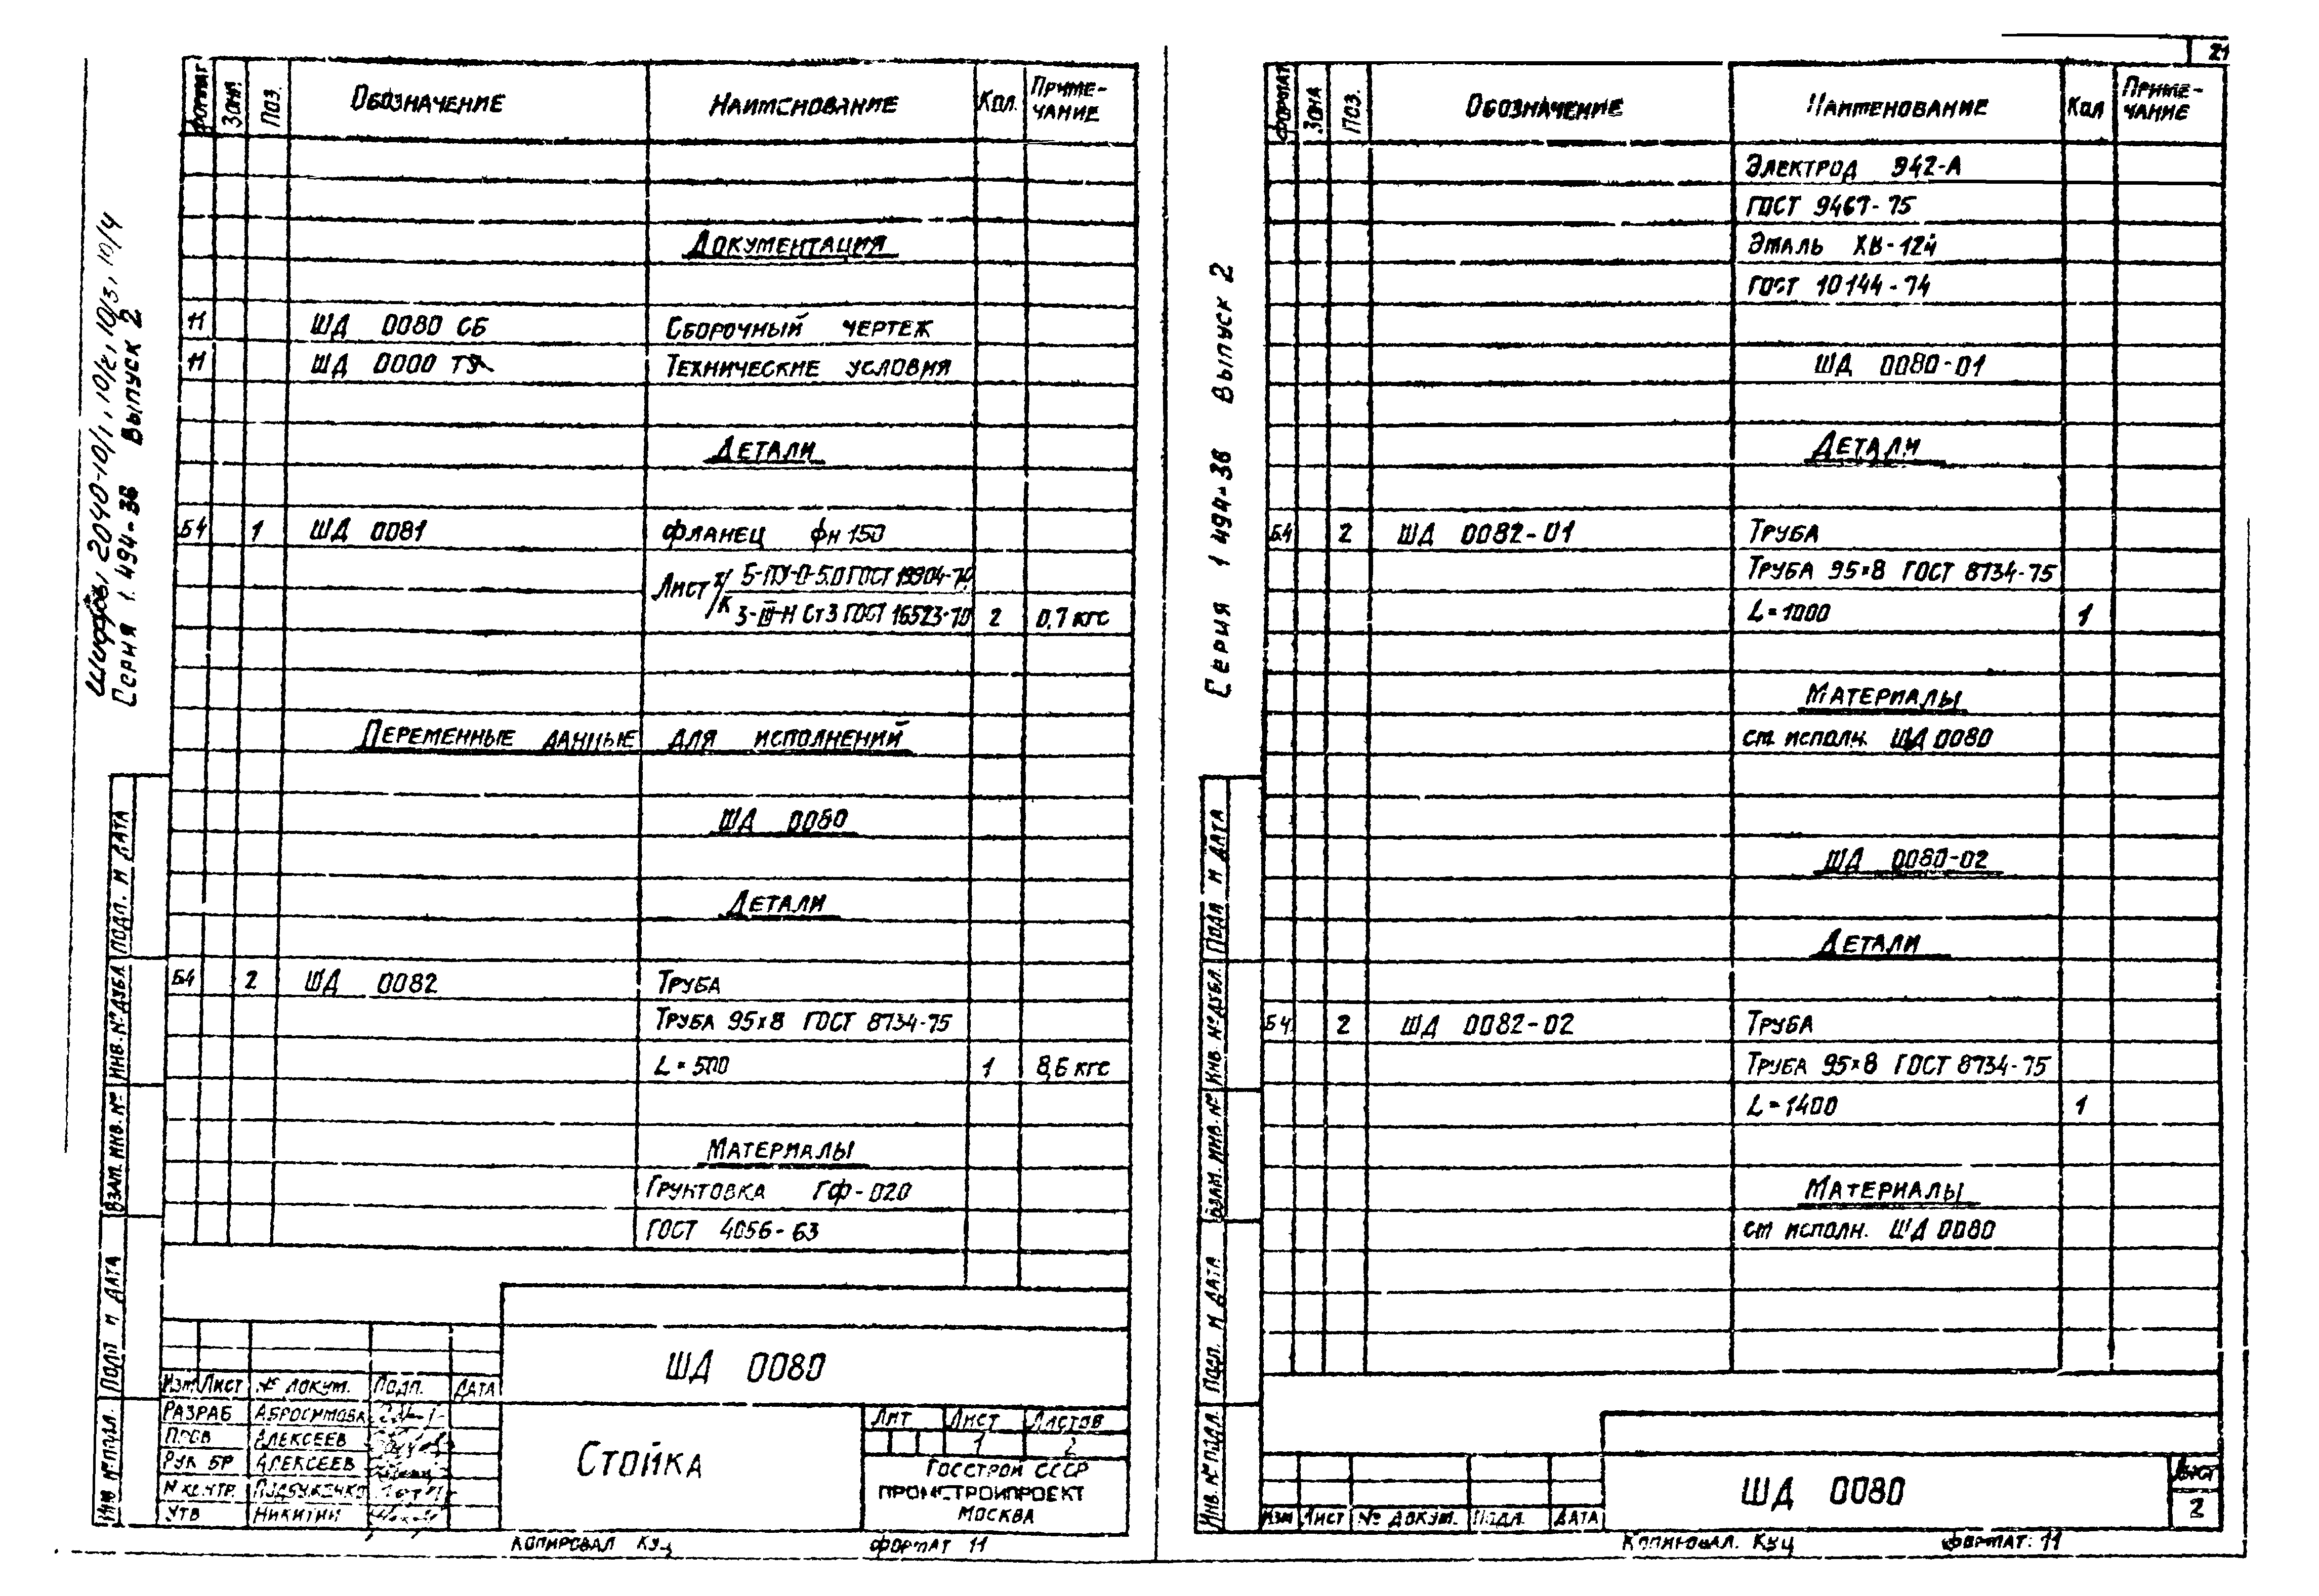 21
Шифры 2040-10/1, 10/2, 10/3, 10/4
Серия 1. 494-36 Выпуск 2
Формат Зона Поз. Обозначение Наименование Кол. Приме-
чание
Документация
11 ШД 0080 СБ Сборочный чертеж
11 ШД 0000 ТУ Технические условия
Детали
Б4 1 ШД 0081 Фланец фн 150
Лист х/к Б-ПУ-О-5.0 ГОСТ 19904-74
3-III-Н Ст3 ГОСТ 16523-70 2 0,7 кгс
Переменные данные для исполнений
ШД 0080
Детали
Б4 2 ШД 0082 Труба
Труба 95×8 ГОСТ 8734-75
L = 500 1 8,6 кгс
Материалы
Грунтовка ГФ-020
ГОСТ 4056-63
ШД 0080
Изм Лист № докум. Подп. Дата
Разраб Абросимова
Пров Алексеев
Рук бр Алексеев
Н контр.
Утв Никитин
Стойка
Лит Лист Листов
1 2
Госстрой СССР
Промстройпроект
Москва
Копировал Куц Формат 11
Инв. № подл. Подп и дата Взам. инв. № Инв. № дубл Подп. и дата
Серия 1 494-36 Выпуск 2
Формат Зона Поз. Обозначение Наименование Кол Приме-
чание
Электрод Э42-А
ГОСТ 9467-75
Эмаль ХВ-124
ГОСТ 10144-74
ШД 0080-01
Детали
Б4 2 ШД 0082-01 Труба
Труба 95×8 ГОСТ 8734-75
L = 1000 1
Материалы
см. исполн. ШД 0080
ШД 0080-02
Детали
Б4 2 ШД 0082-02 Труба
Труба 95×8 ГОСТ 8734-75
L = 1400 1
Материалы
см исполн. ШД 0080
ШД 0080
Лист
2
Изм Лист № докум. Подп. Дата
Копировал. Куц Формат: 11
Инв. № подл. Подп. и дата Взам. инв. № Инв. № дубл. Подп и дата